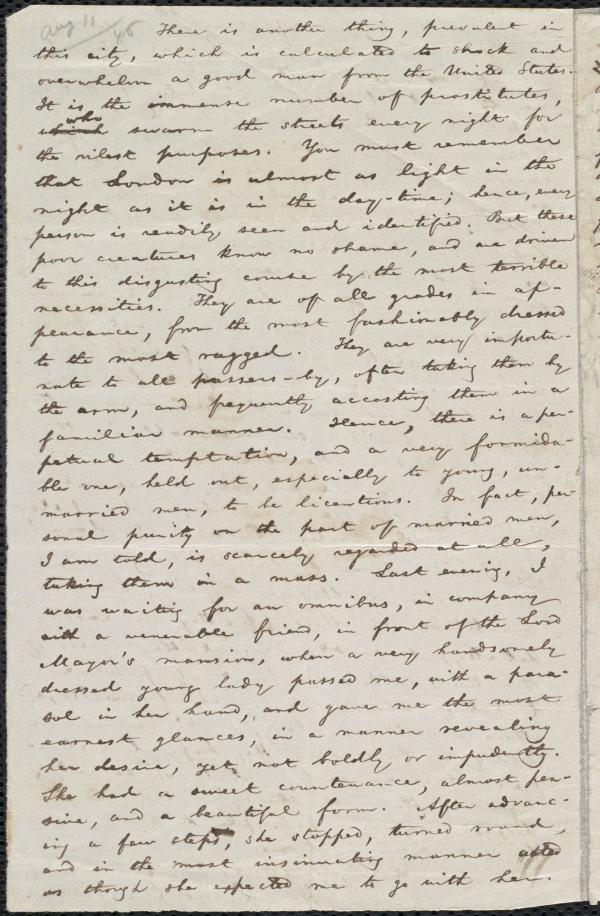 Aug 11
/46
There is another thing, prevalent in
this city, which is calculated to shock and
overwhelm a good man from the United States.
It is the immense number of prostitutes,
who
which swarm the streets every night for
the vilest purposes. You must remember
that London is almost as light in the
night as it is in the day-time; hence, every
person is readily seen and identified. But these
poor creatures know no shame, and are driven
to this disgusting course by the most terrible
necessities. They are of all grades in ap-
pearance, from the most fashionably dressed
to the most ragged. They are very importu-
nate to all passers-by, often taking them by
the arm, and frequently accosting them in a
familiar manner. Hence, there is a per-
petual temptation, and a very formida-
ble one, held out, especially to young, un-
married men, to be licentious. In fact, per-
sonal purity on the part of married men,
I am told, is scarcely regarded at all,
taking them in a mass. Last evening, I
was waiting for an omnibus, in company
with a venerable friend, in front of the Lord
Mayor's mansion, when a very handsomely
dressed young lady passed me, with a para-
sol in her hand, and gave me the most
earnest glances, in a manner revealing
her desire, yet not boldly or impudently.
She had a sweet countenance, almost pen-
sive, and a beautiful form. After advanc-
ing a few steps, she stopped, turned round,
and in the most insinuating manner acted
as though she expected me to go with her.